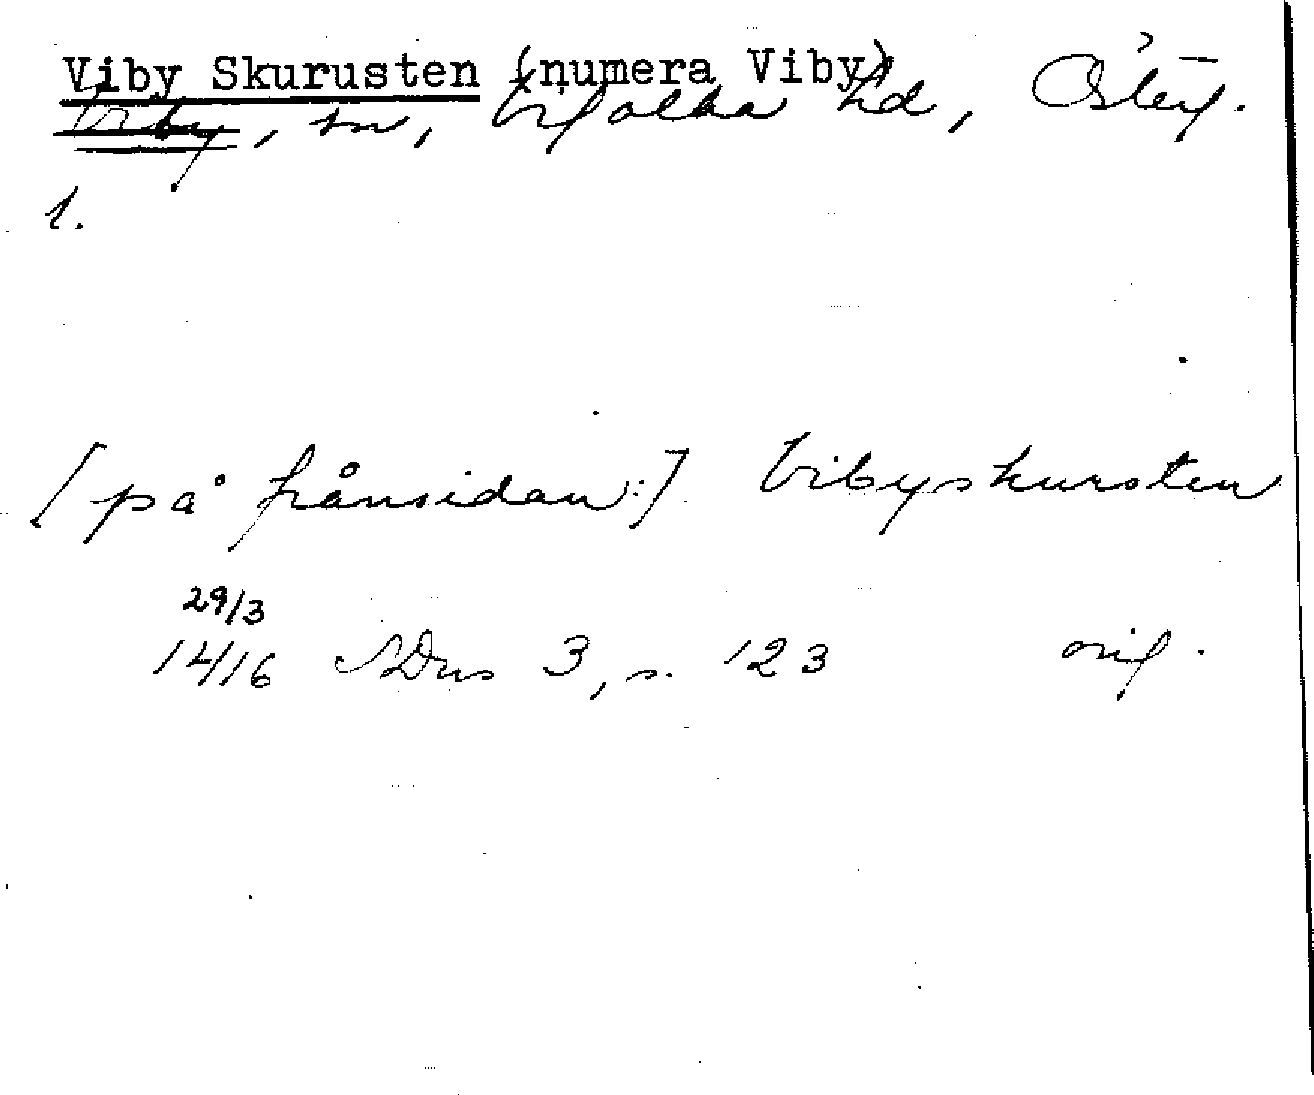 Viby Skurusten (numera Viby)
Viby, sn, Vifolka hd, Österg.
1.
[på frånsidan:] Vibyskursten
29/3
1416 SDns 3, s. 123 orig.